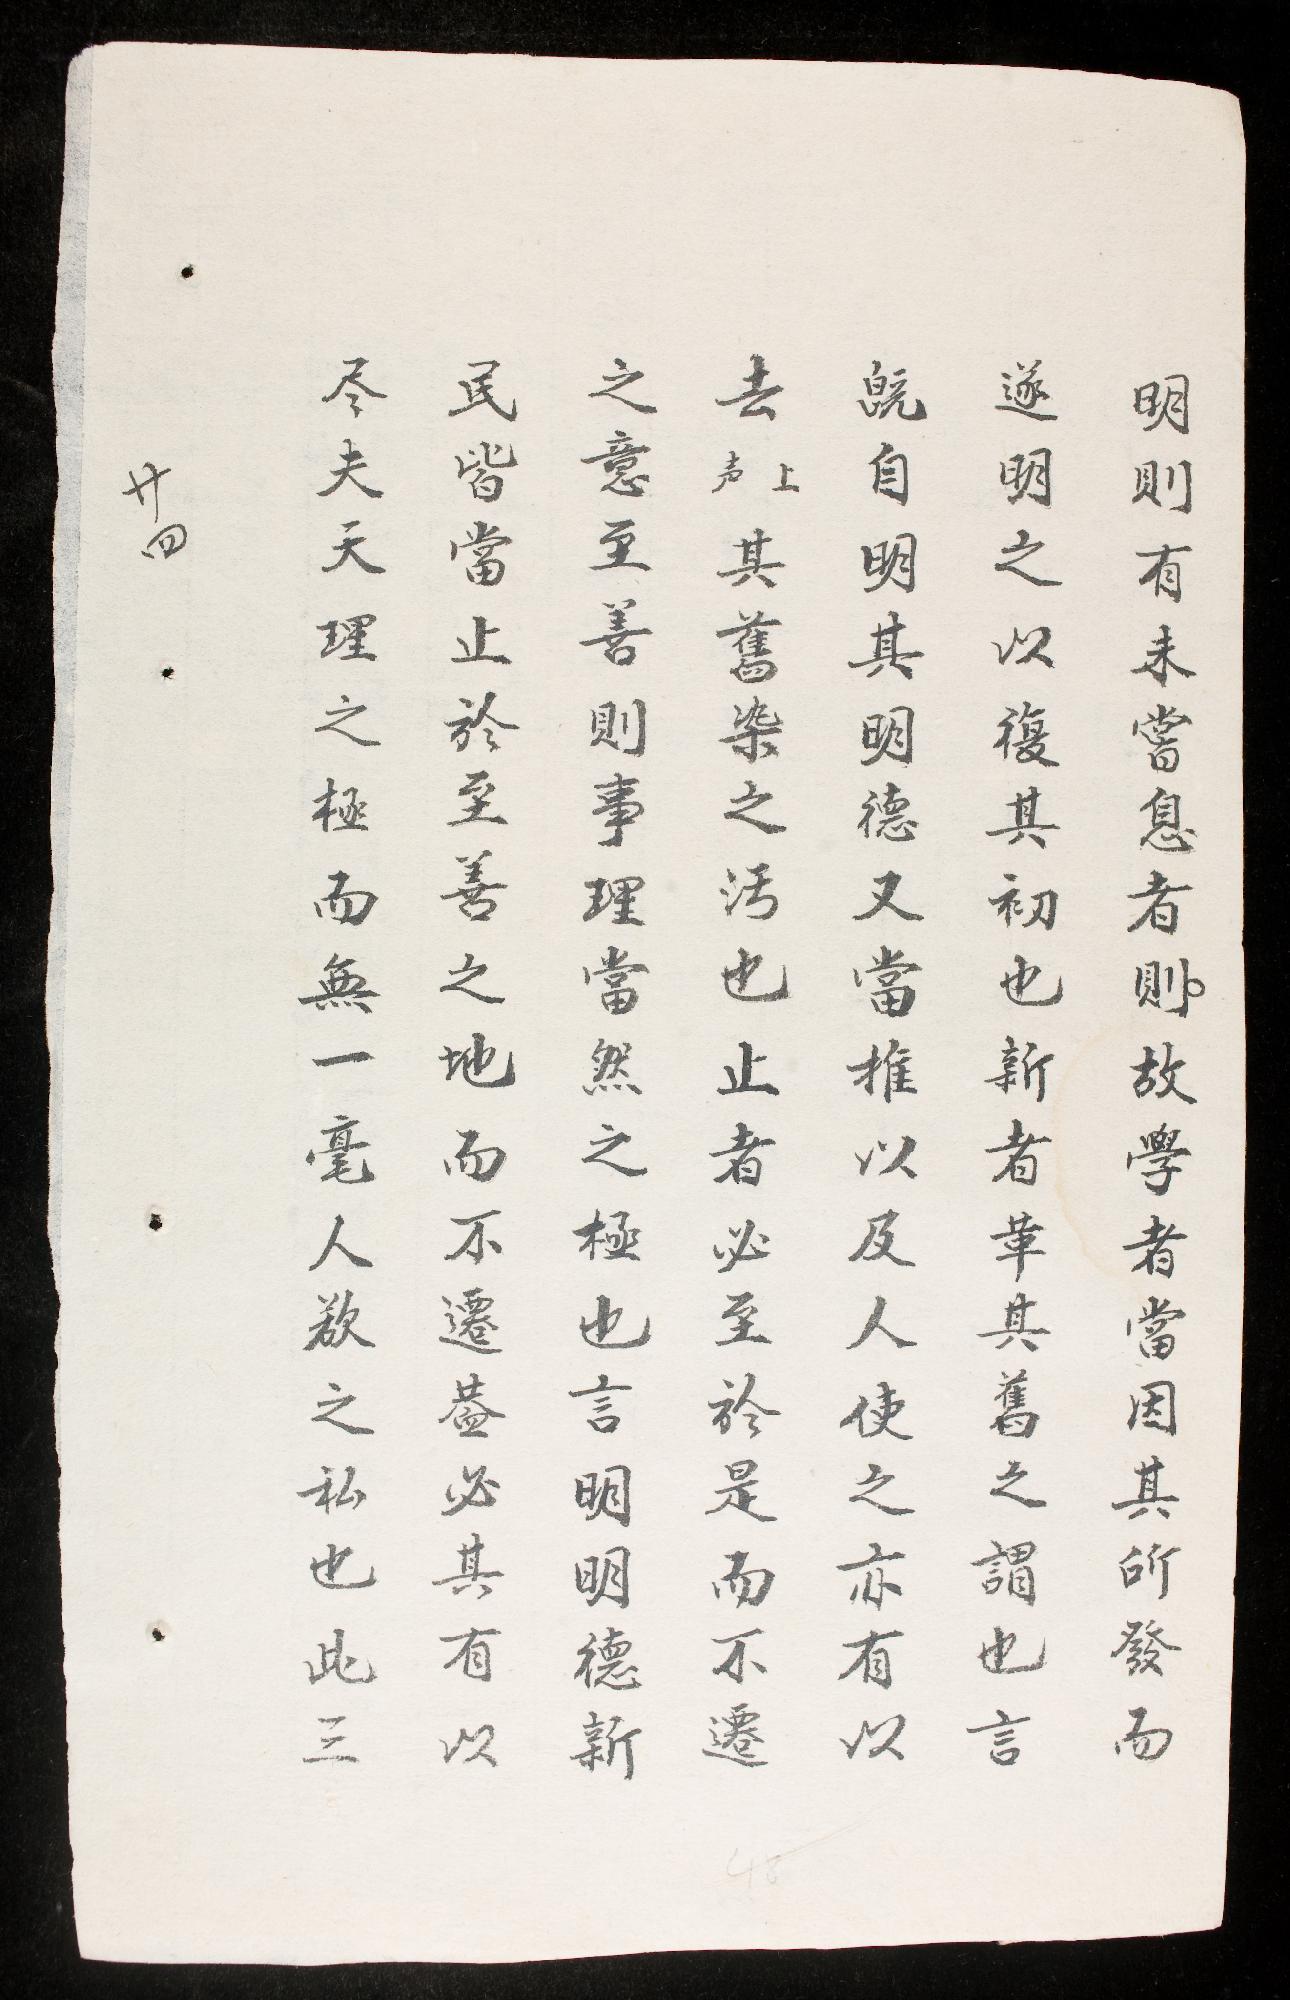 明則有未嘗息者則故學者當因其所發而
遂明之以復其初也新者革其舊之謂也言
既自明其明德又當推以及人使之亦有以
去上声其舊染之汚也止者必至於是而不遷
之意至善則事理當然之極也言明明德新
民皆當止於至善之地而不遷蓋必其有以
尽夫天理之極而無一毫人欲之私也此三
廿四
48